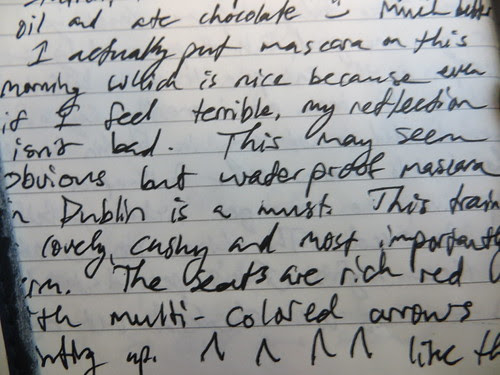 oil and ate chocolate Much better
I actually put mascara on this
morning which is nice because even
if I feel terrible, my reflection
isn't bad. This may seem
obvious but waderproof mascara
n Dublin is a must. This train
lovely, cushy and most importantly
rm. The seats are rich red
ith multi-colored arrows
inting up. ^ ^ ^ ^ like th